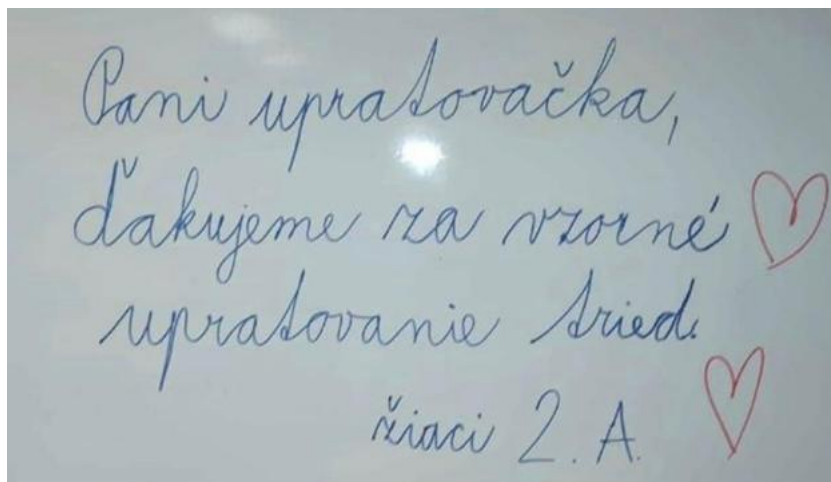 Pani upratovačka,
ďakujeme za vzorné
upratovanie tried.
žiaci 2. A.